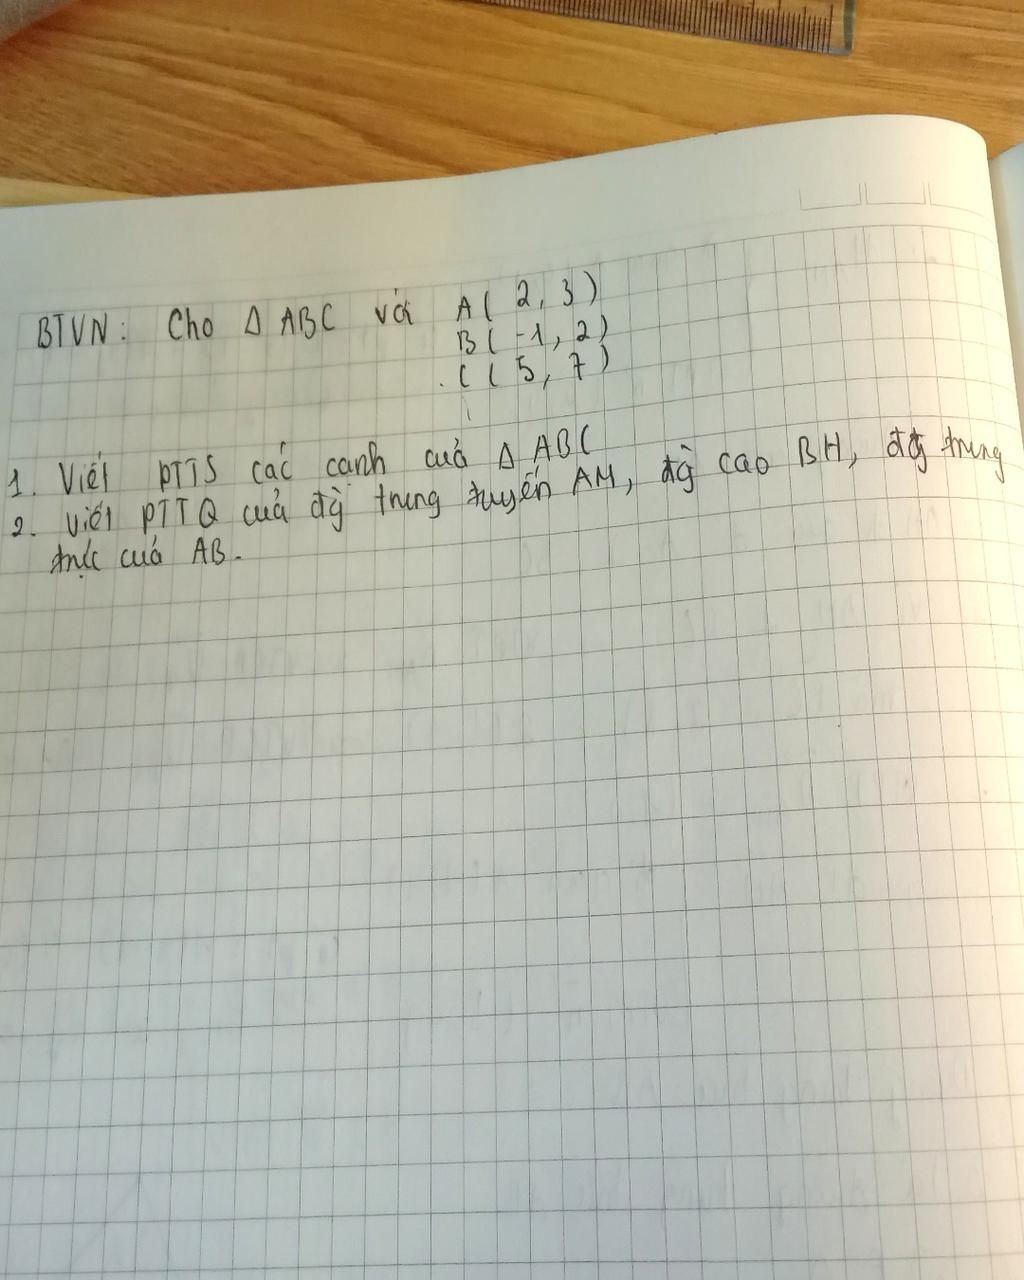 BTVN: Cho Δ ABC với A( 2, 3)
B( -1, 2)
C( 5, 7)
1. Viết PTTS các cạnh của Δ ABC
2. Viết PTTQ của đg trung tuyến AM, đg cao BH, đg trung
trực của AB.